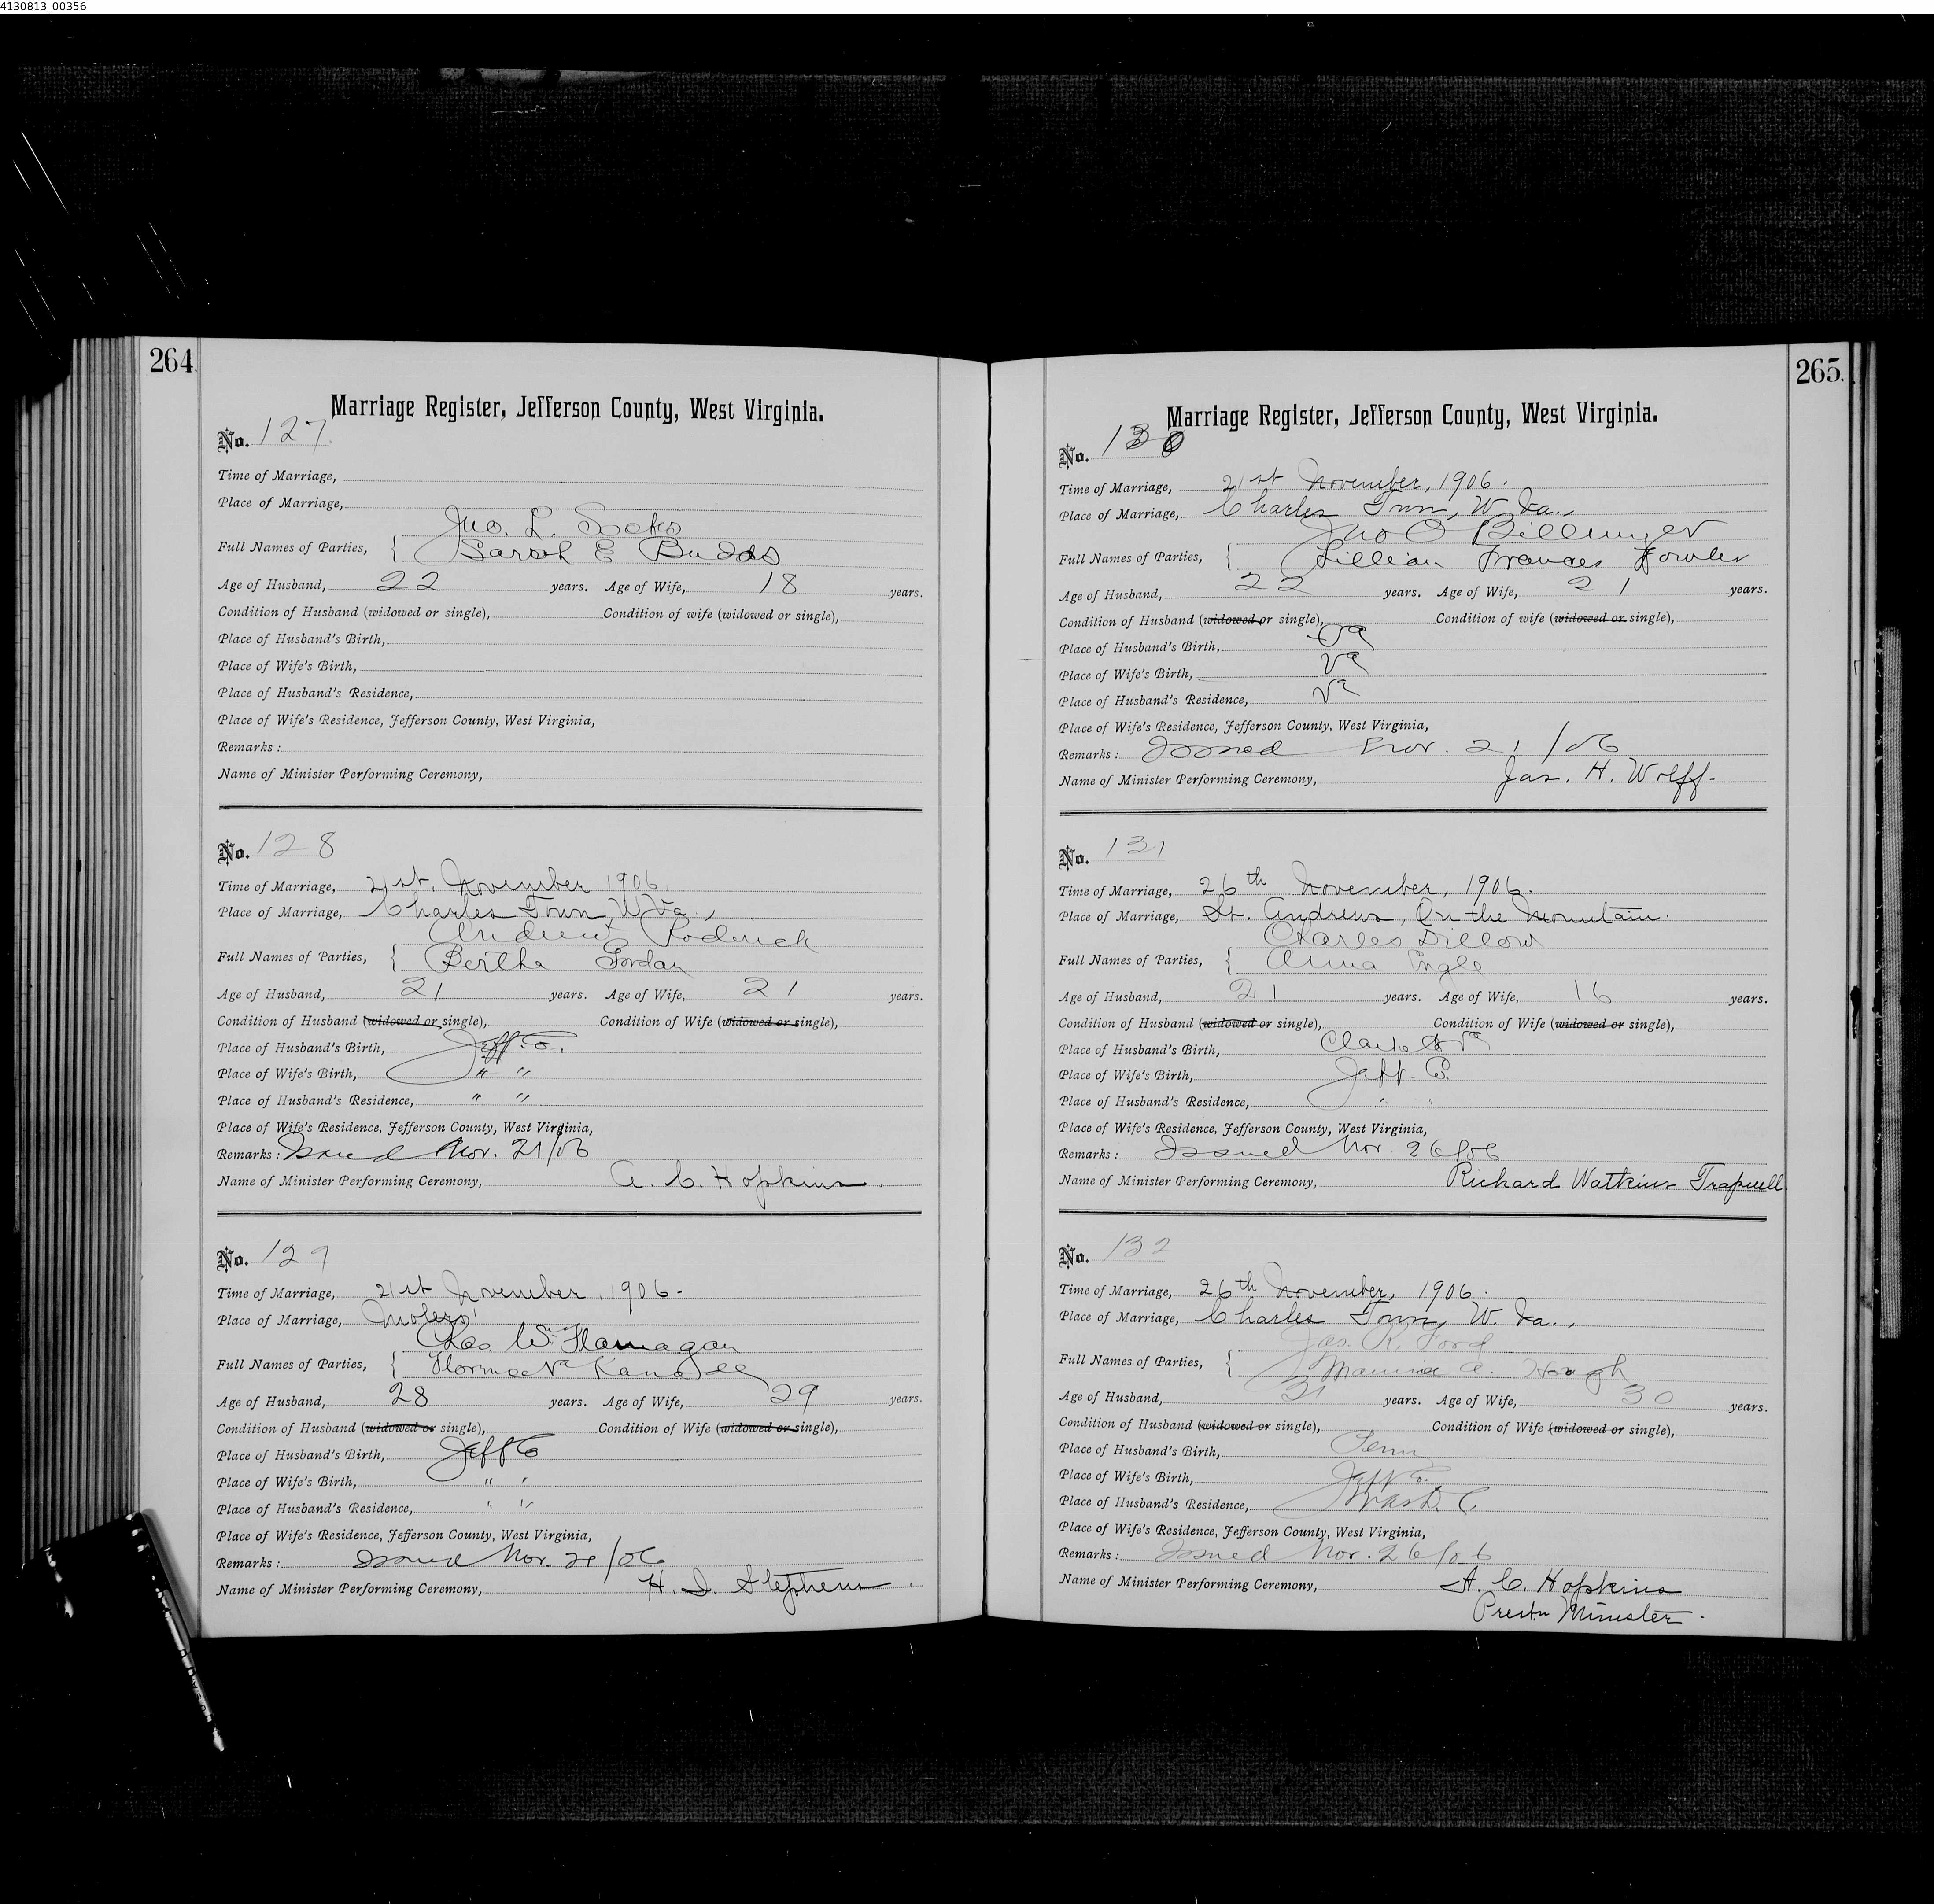 4130813_00356
264
Marriage Register, Jefferson County, West Virginia.
No. 127
Time of Marriage,
Place of Marriage,
Jno. L. Socks
Full Names of Parties, { Sarah E Budds
Age of Husband, 22 years. Age of Wife, 18 years.
Condition of Husband (widowed or single), Condition of wife (widowed or single),
Place of Husband's Birth,
Place of Wife's Birth,
Place of Husband's Residence,
Place of Wife's Residence, Jefferson County, West Virginia,
Remarks:
Name of Minister Performing Ceremony,
No. 128
Time of Marriage, 21st, November 1906.
Place of Marriage, Charles Town, W Va.,
Andrew Roderick
Full Names of Parties, { Bertha Jordan
Age of Husband, 21 years. Age of Wife, 21 years.
Condition of Husband (widowed or single), Condition of Wife (widowed or single),
Place of Husband's Birth, Jeff. Co.
Place of Wife's Birth, " "
Place of Husband's Residence, " "
Place of Wife's Residence, Jefferson County, West Virginia,
Remarks: Issued Nov. 21/06
Name of Minister Performing Ceremony, A. C. Hopkins.
No. 129
Time of Marriage, 21st November, 1906.
Place of Marriage, Molers'
Chas Wm Flanagan
Full Names of Parties, {
Age of Husband, 28 years. Age of Wife, 29 years.
Condition of Husband (widowed or single), Condition of Wife (widowed or single),
Place of Husband's Birth, Jeff Co
Place of Wife's Birth, " "
Place of Husband's Residence, " "
Place of Wife's Residence, Jefferson County, West Virginia,
Remarks: Issued Nov. /06
Name of Minister Performing Ceremony, H. I. Stephens.
265.
Marriage Register, Jefferson County, West Virginia.
No. 130
Time of Marriage, 21st November, 1906.
Place of Marriage, Charles Town, W. Va.,
Jno O Billmyer
Full Names of Parties, { Lillian Frances Fowler
Age of Husband, 22 years. Age of Wife, 21 years.
Condition of Husband (widowed or single), Condition of wife (widowed or single),
Place of Husband's Birth, Va
Place of Wife's Birth, Va
Place of Husband's Residence, Va
Place of Wife's Residence, Jefferson County, West Virginia,
Remarks: Issued Nov. 21/06
Name of Minister Performing Ceremony, Jas. H. Wolff.
No. 131
Time of Marriage, 26th November, 1906.
Place of Marriage, St. Andrews, On the Mountain.
Charles Dillow
Full Names of Parties, { Anna Ingle
Age of Husband, 21 years. Age of Wife, 16 years.
Condition of Husband (widowed or single), Condition of Wife (widowed or single),
Place of Husband's Birth, Clarke Co Va
Place of Wife's Birth, Jeff. Co.
Place of Husband's Residence, " "
Place of Wife's Residence, Jefferson County, West Virginia,
Remarks: Issued Nov 26/06
Name of Minister Performing Ceremony, Richard Watkins Trapnell
No. 132
Time of Marriage, 26th November, 1906.
Place of Marriage, Charles Town, W. Va.,
Jas. R. Ford
Full Names of Parties, { Mamie A. Hough
Age of Husband, 31 years. Age of Wife, 30 years.
Condition of Husband (widowed or single), Condition of Wife (widowed or single),
Place of Husband's Birth, Penn
Place of Wife's Birth, Jeff Co.
Place of Husband's Residence, Wash. D. C.
Place of Wife's Residence, Jefferson County, West Virginia,
Remarks: Issued Nov. 26/06
Name of Minister Performing Ceremony, A. C. Hopkins
Presbn Minister.